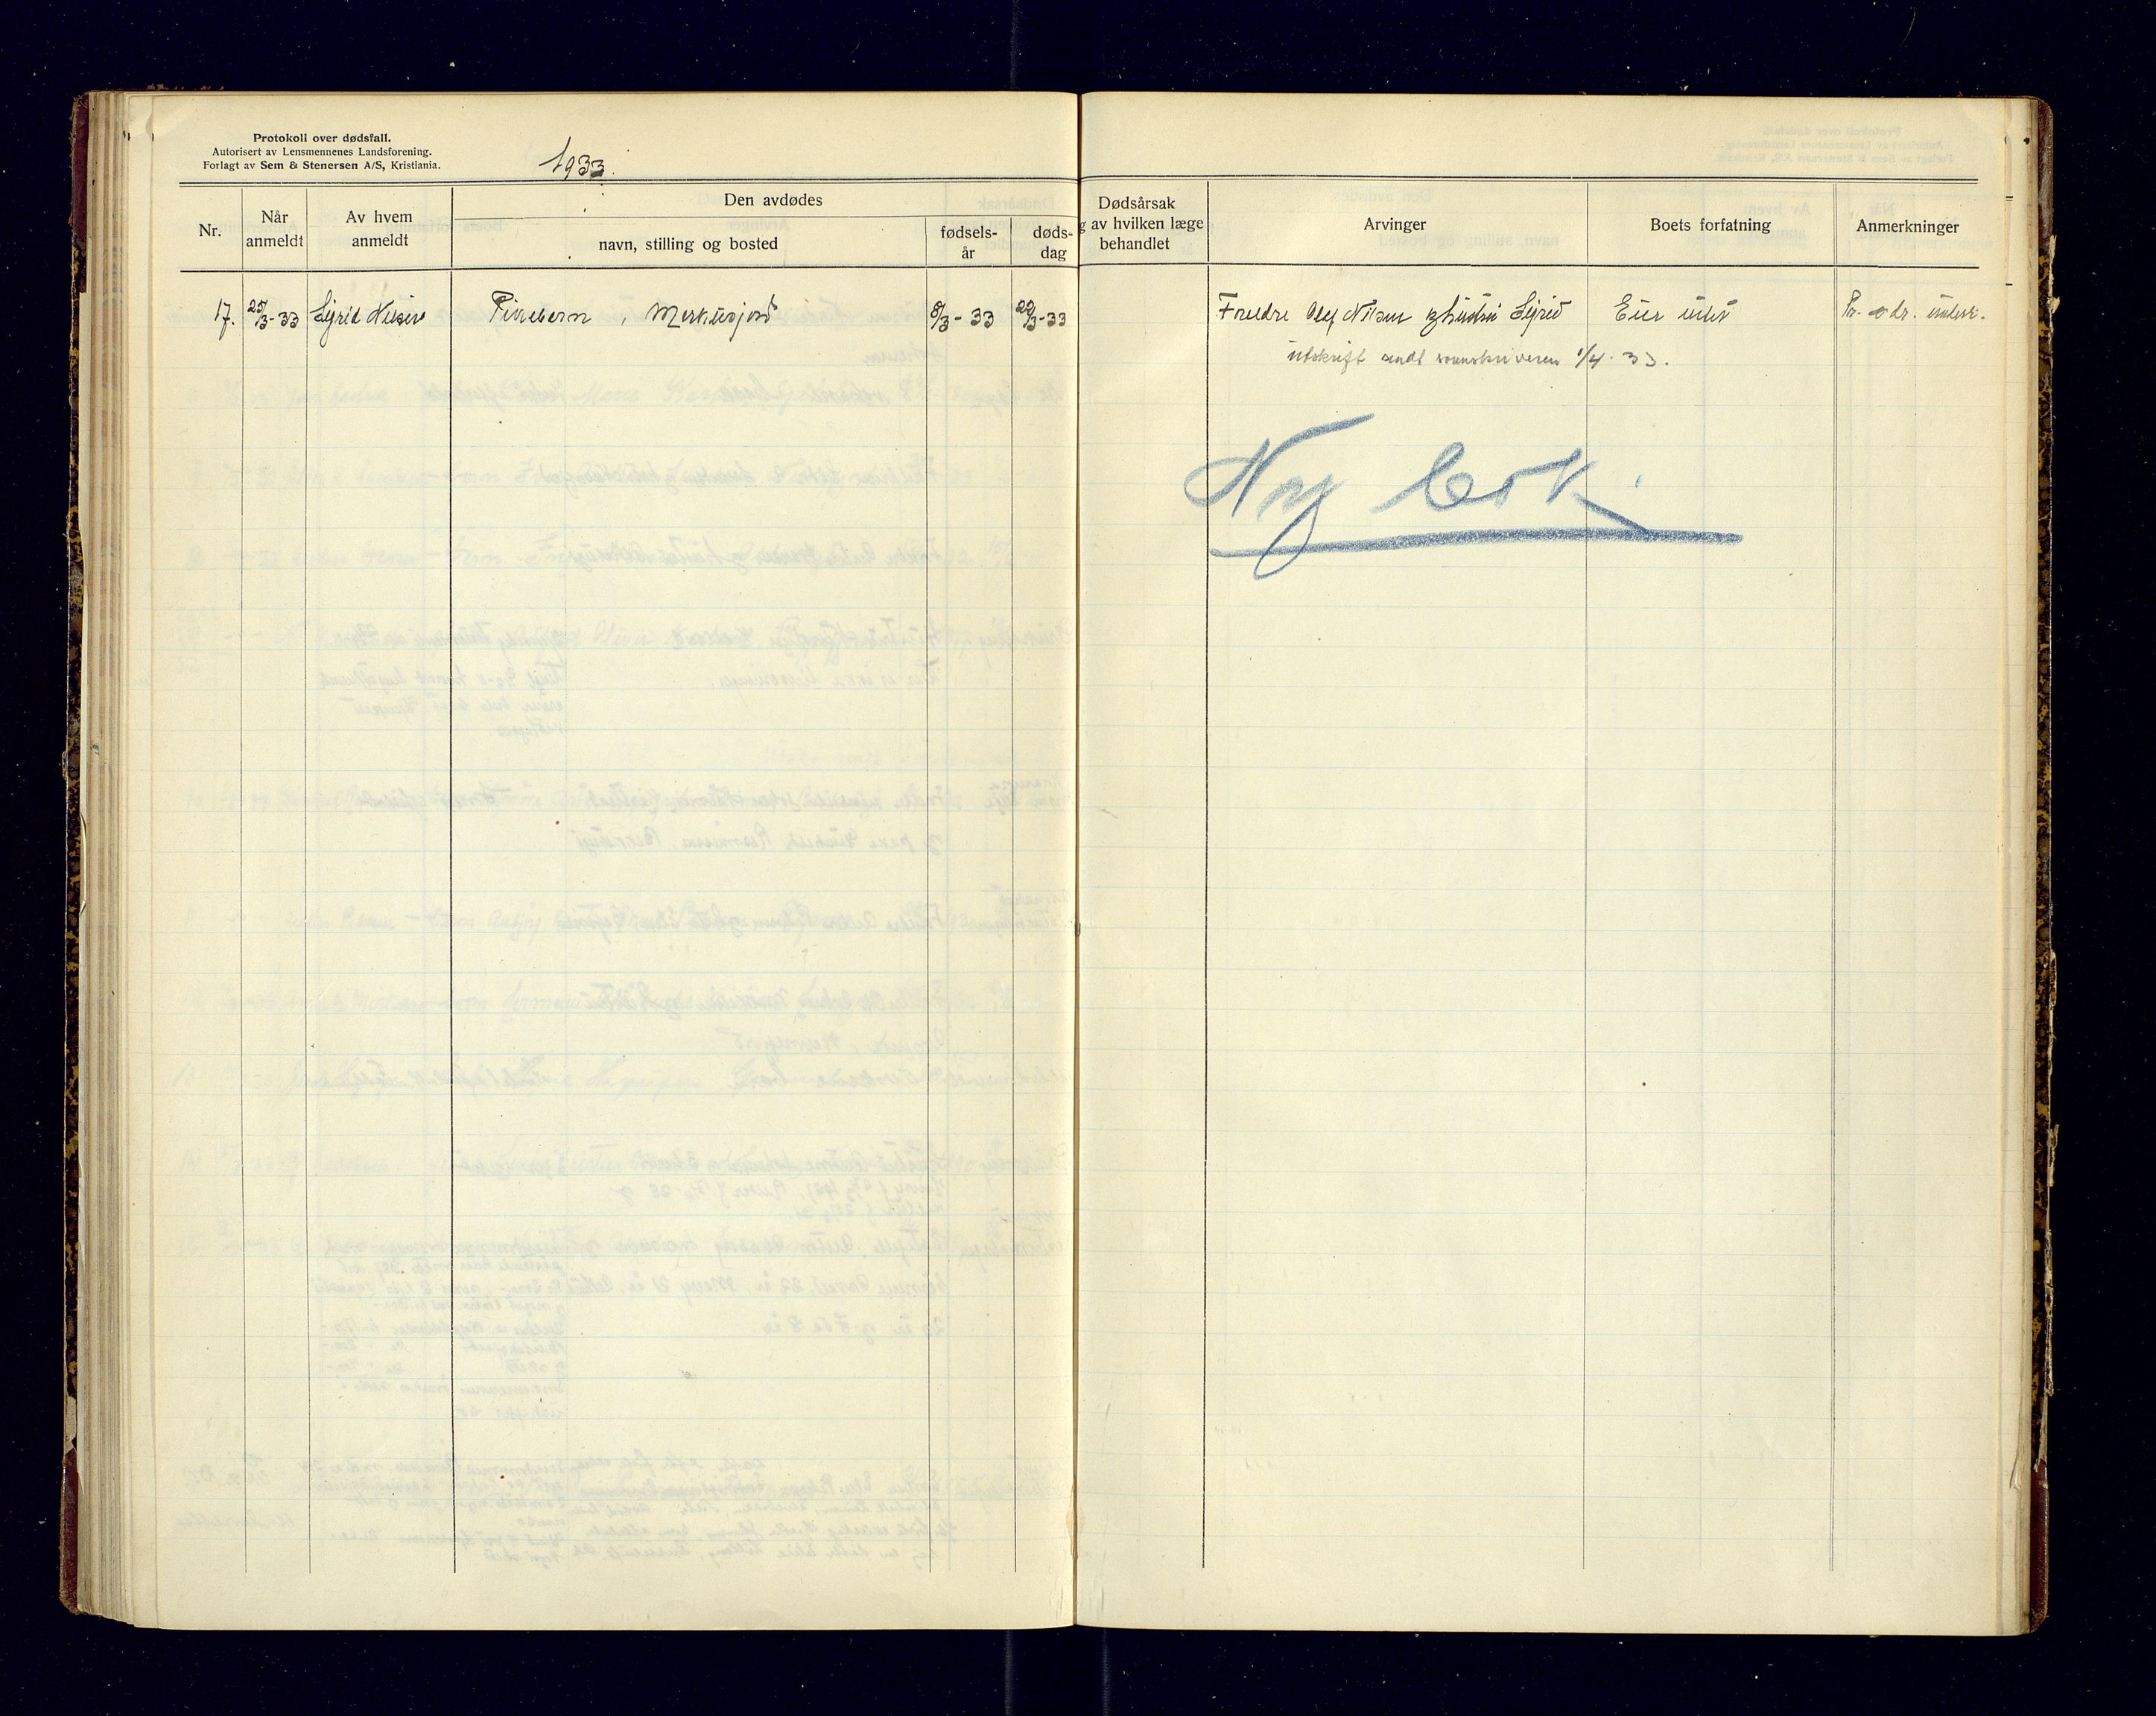 Protokoll over dødsfall.
Autorisert av Lensmennenes Landsforening.
Forlagt av Sem & Stenersen A/S, Kristiania.
1933.
Nr.
Når anmeldt
Av hvem anmeldt
Den avdødes
navn, stilling og bosted
fødsels-år
døds-dag
Dødsårsak
g av hvilken læge
behandlet
Arvinger
Boets forfatning
Anmerkninger
17. 25/3-33 Sigrid Nilsen Pikebarn, Merkusjord 8/3-33 22/3-33 Foreldre Olef Nilsen og hustru Sigrid Eier intet
utskrift sendt sorenskriveren 1/4-33.
Ny bok.